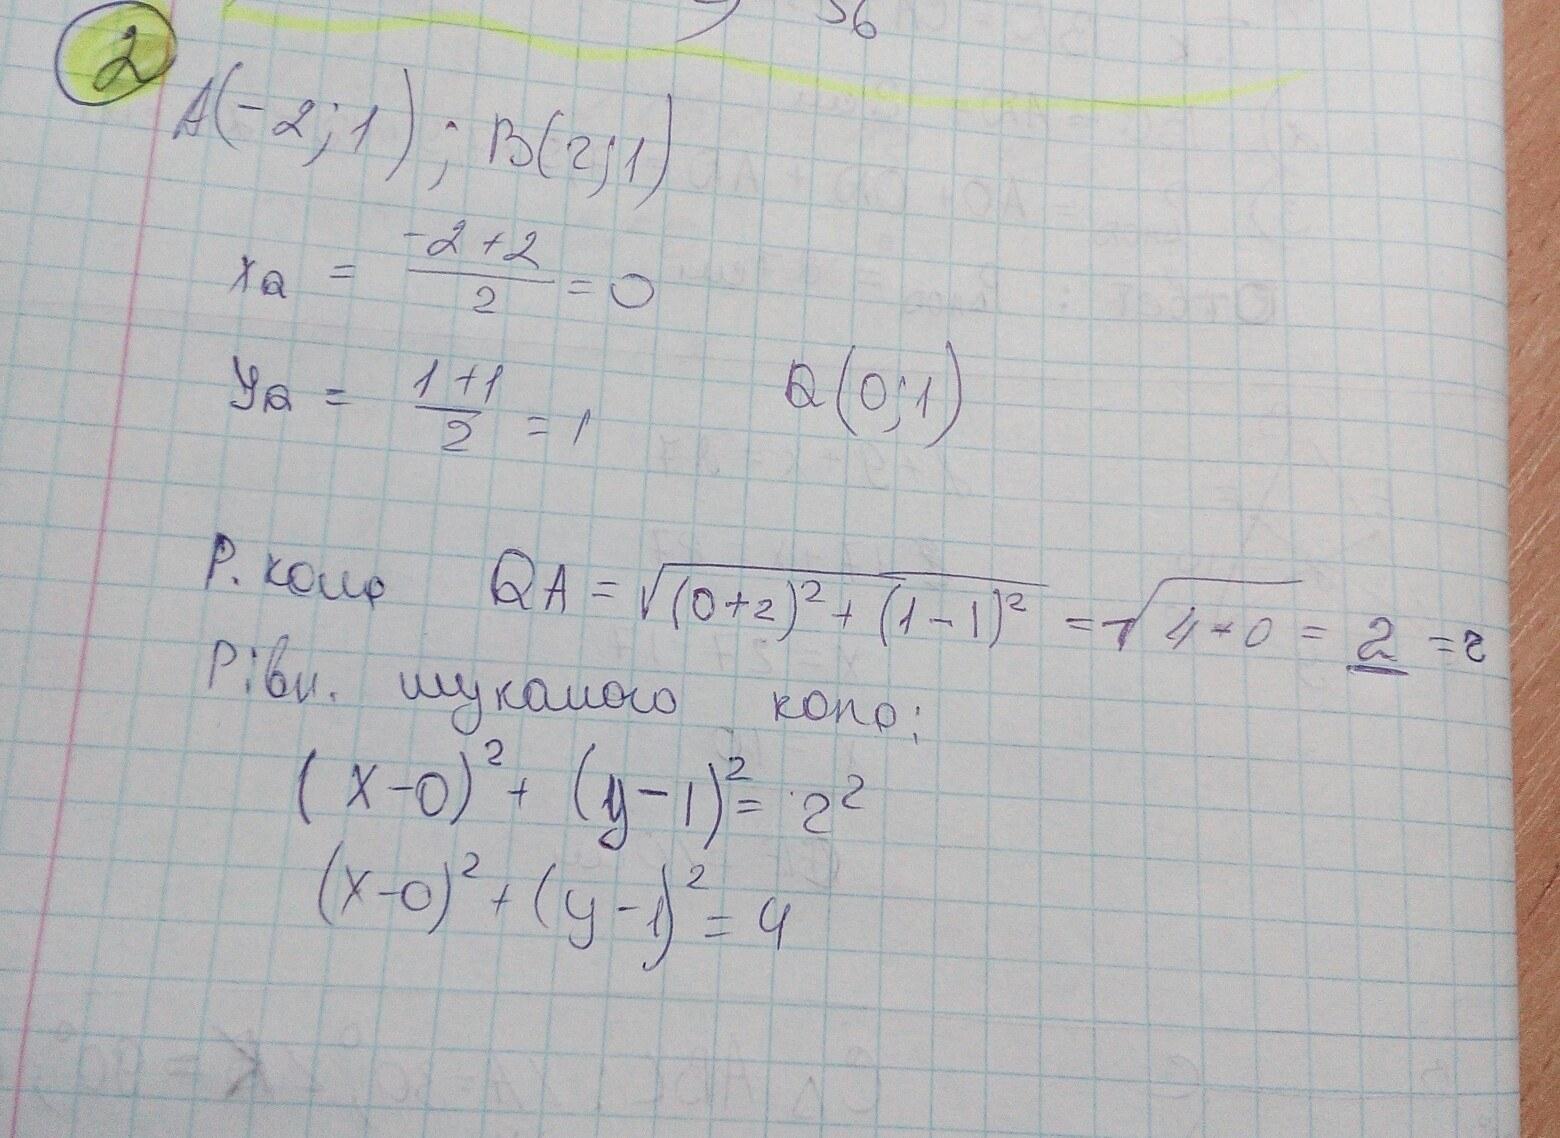 ) 36
2
A(-2;1); B(2;1)
xQ = (-2+2)/2 = 0
yQ = (1+1)/2 = 1 Q(0;1)
Р. кола QA = √((0+2)²+(1-1)²) = √(4+0) = 2 = r
Рівн. шуканого кола:
(x-0)² + (y-1)² = 2²
(x-0)² + (y-1)² = 4